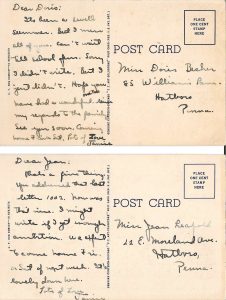 Dear Doris:
It's been a swell
summer. But I miss
all of you. Can't wait
till school opens. Sorry
I didn't write. But I
just didn't. Hope you
have had a
my regards to the
See you soon. Coming
home Sun. Lots of Love
POST CARD
PLACE
ONE CENT
STAMP
HERE
Miss Doris
85 Williams
Hatboro
Penna.
Dear Jean:
That's a fine thing
You addressed that last
letter 1002. how was
that now. I might
write if I get enough
ambition. We expect
to come home Fri.
or Sat of next week. It's
lovely down here.
Lots of Love
POST CARD
PLACE
ONE CENT
STAMP
HERE
Miss Jean
12 E. Moreland Ave.
Hatboro,
Penna.